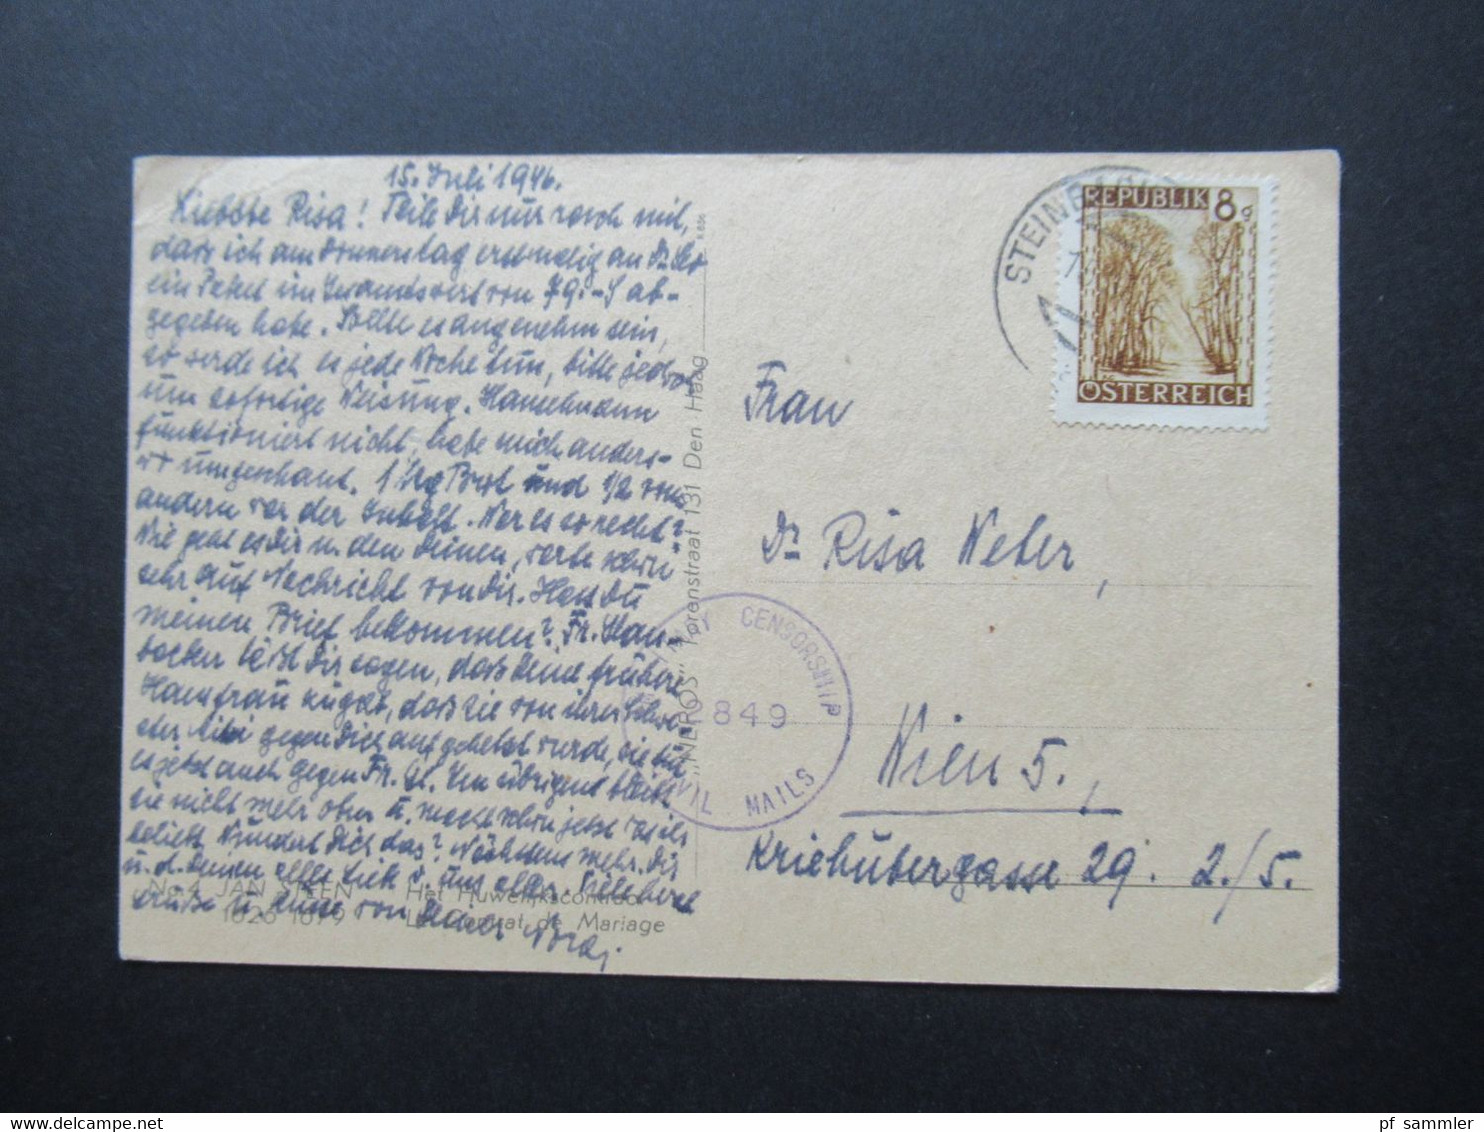 15. Juli 1946.
Liebste Risa! Teile Dir nur rasch mit,
dass ich am Donnerstag erstmalig an Dr.
ein Paket im Inlandswert von 79.-S ab-
gegeben habe. Sollte es angenehm sein,
so werde ich es jede Woche tun, bitte jedoch
um sofortige Weisung.
funktioniert nicht, habe mich anders-
wo umgeschaut. 1 kg Brot und 1/2 vom
andern war der Inhalt. War es so recht?
Wie geht es Dir u. den Deinen, warte schon
sehr auf Nachricht von Dir. Hast Du
meinen Brief bekommen? Fr.
lässt Dir sagen, dass Deine frühere
Hausfrau zugibt, dass sie von ihrer
gegen Dich aufgehetzt wurde, sie tut
es jetzt auch gegen Fr. Im übrigen bleibt
sie nicht mehr oben u.
beliebt. Wundert Dich das? Nächstens mehr. Dir
u. d. Deinen alles Liebe v. uns allen.
Grüße u. Küsse von Deiner
No. 4 JAN STEEN Het Huwelijkscontract
1626-1679 Le Contrat de Mariage
„NEROS" Torenstraat 131 Den Haag
K 656
CENSORSHIP
2849
CIVIL MAILS
REPUBLIK 8 g
ÖSTERREICH
Frau
Dr Risa Weber,
Wien 5.,
Kriehubergasse 29. 2./5.
pf_sammler